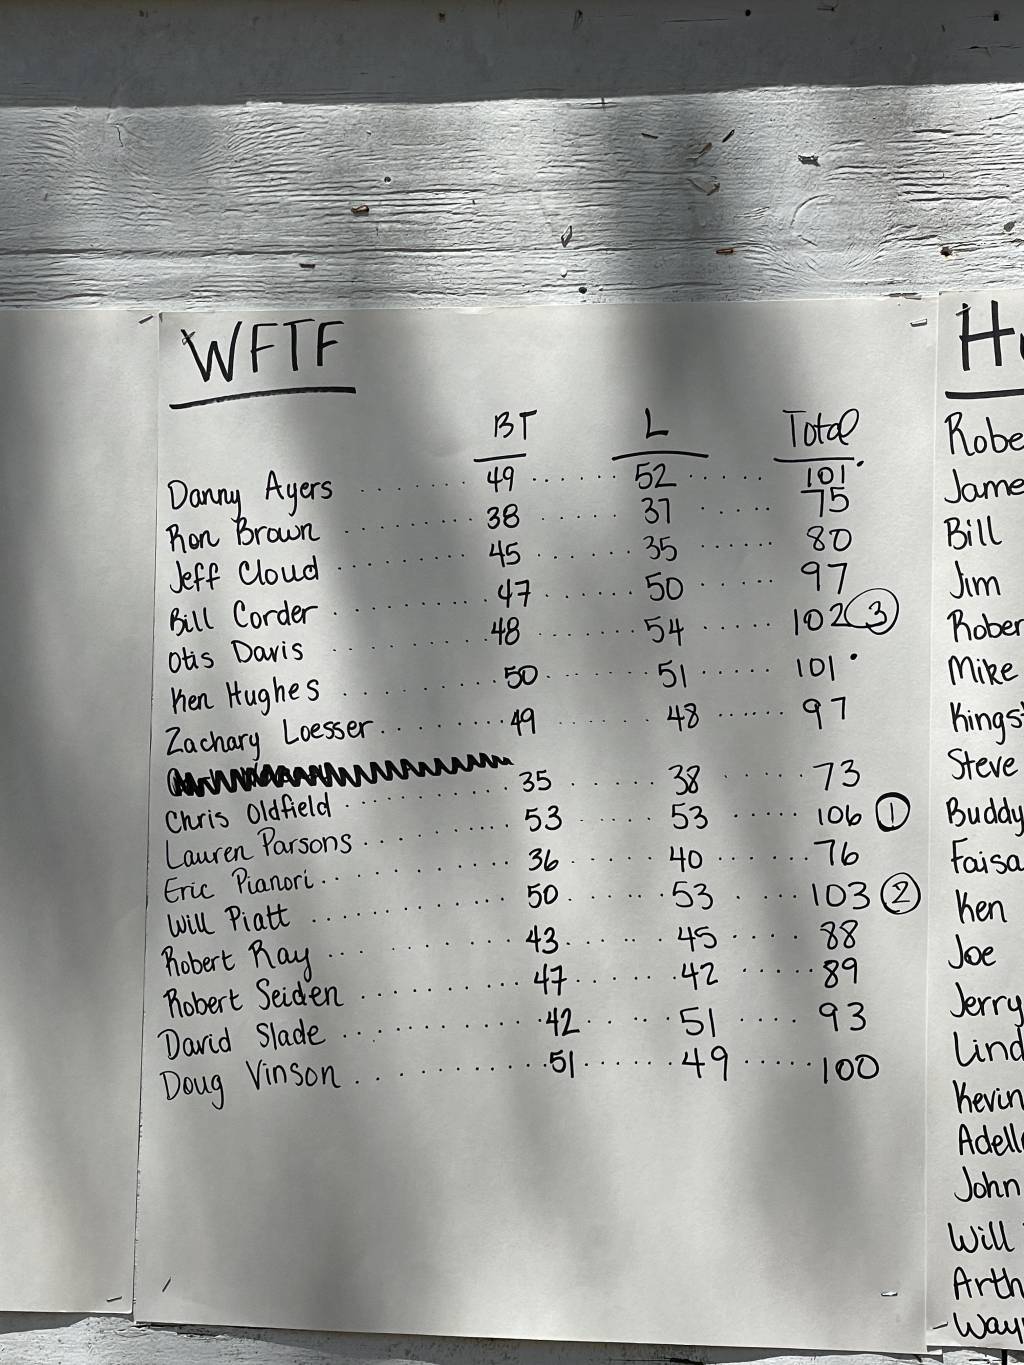 WFTF
BT L Total
Danny Ayers 49 52 101
Ron Brown 38 37 75
Jeff Cloud 45 35 80
Bill Corder 47 50 97
Otis Davis 48 54 102 3
Ken Hughes 50 51 101
Zachary Loesser 49 48 97
Chris Oldfield 35 38 73
Lauren Parsons 53 53 106 1
Eric Pianori 36 40 76
Will Piatt 50 53 103 2
Robert Ray 43 45 88
Robert Seiden 47 42 89
David Slade 42 51 93
Doug Vinson 51 49 100
H
Robe
Jame
Bill
Jim
Rober
Mike
Kings
Steve
Buddy
Faisa
Ken
Joe
Jerry
Lind
Kevin
Adell
John
Will
Arth
Way